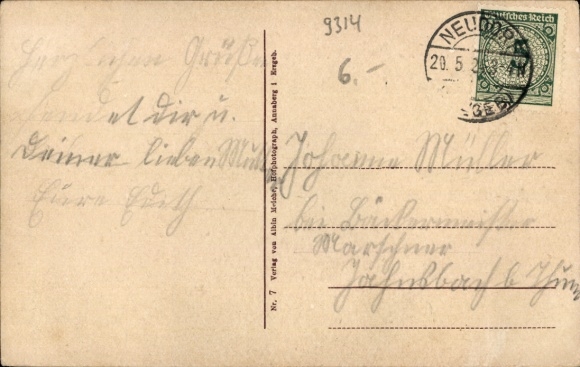 9314
6.-
Herzlichen Grüße
sendet dir u.
deiner lieben
Eure Edith
Nr. 7 Verlag von Albin Meiche, Hofphotograph, Annaberg i. Erzgeb.
NEUDORF
20. 5. 2
ZGEB
Deutsches Reich
Johanne Müller
bei Bäckermeister
Marschner
Jahnsbach b Thum